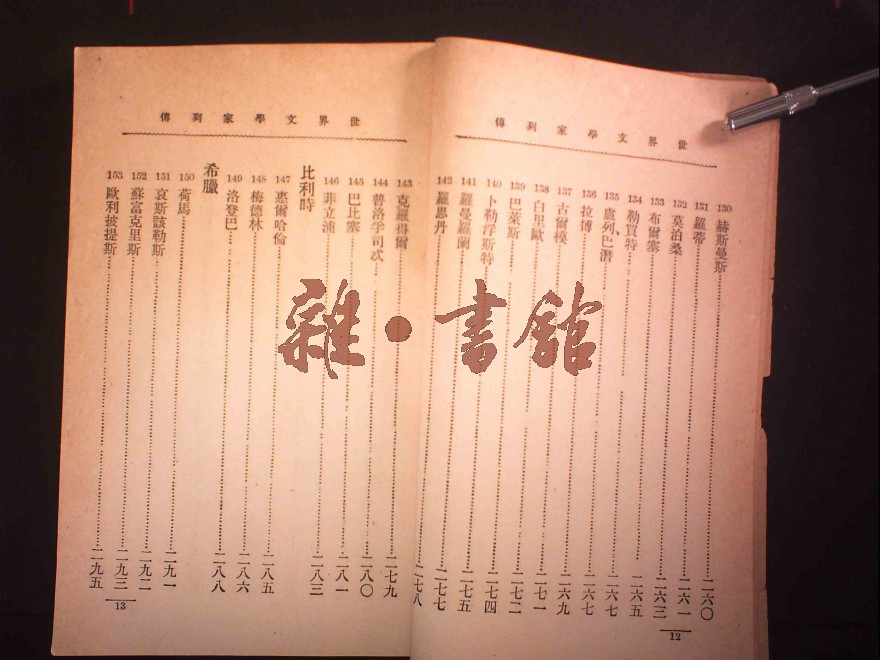 世界文學家列傳
130 赫斯曼斯 二六〇
131 羅蒂 二六一
132 莫泊桑 二六三
133 布爾塞 二六五
134 勒買特 二六七
135 盧列巴潛 二六七
136 拉博 二六九
137 古爾模 二七一
138 白里歐 二七二
139 巴萊斯 二七四
140 卜勒浮斯特 二七五
141 羅曼羅蘭 二七七
142 羅思丹 二七八
12
世界文學家列傳
143 克羅得爾 二七九
144 普洛孚司忒 二八〇
145 巴比塞 二八一
146 菲立浦 二八三
比利時
147 惠爾哈倫 二八五
148 梅德林 二八六
149 洛登巴 二八八
希臘
150 荷馬 二九一
151 哀斯該勒斯 二九二
152 蘇富克里斯 二九三
153 歐利披提斯 二九五
13
雜·書館